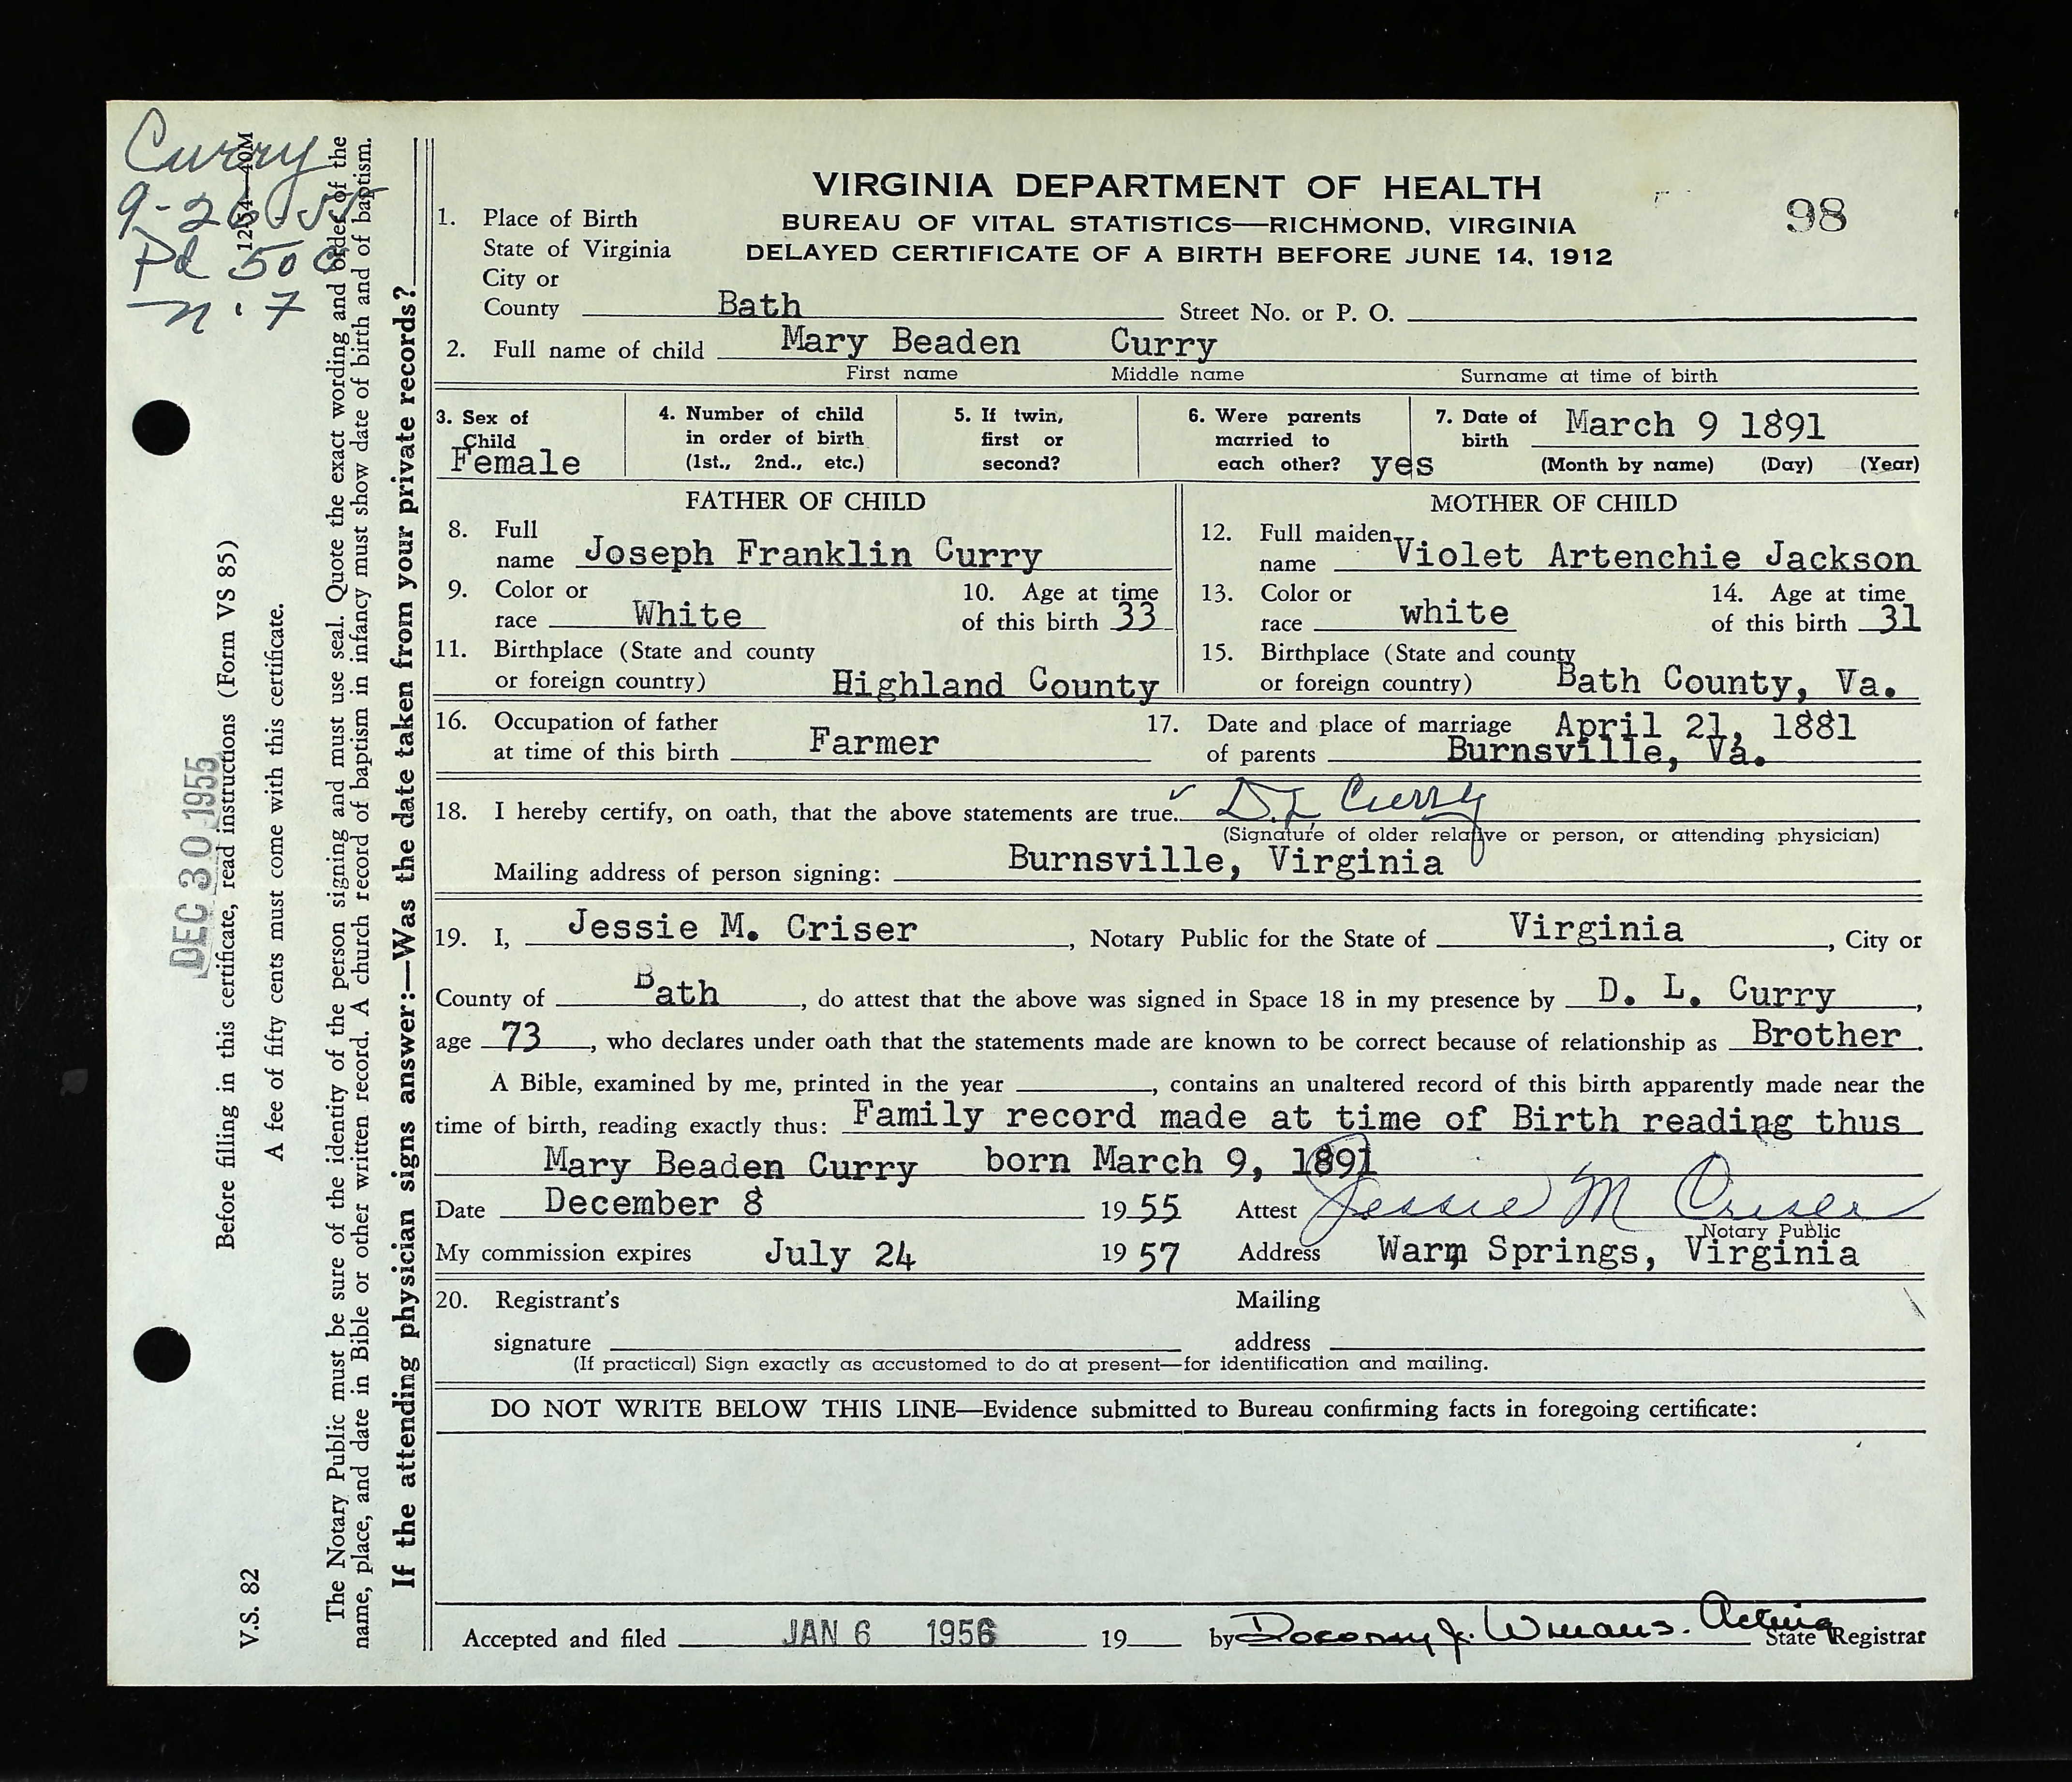 Curry
9-26-55
Pd 50¢
n.7
12-54—40M
DEC 30 1955
Before filling in this certificate, read instructions (Form VS 85)
A fee of fifty cents must come with this certificate.
V.S. 82
The Notary Public must be sure of the identity of the person signing and must use seal. Quote the exact wording and order of the
name, place, and date in Bible or other written record. A church record of baptism in infancy must show date of birth and of baptism.
If the attending physician signs answer:—Was the date taken from your private records?
VIRGINIA DEPARTMENT OF HEALTH
BUREAU OF VITAL STATISTICS—RICHMOND, VIRGINIA
DELAYED CERTIFICATE OF A BIRTH BEFORE JUNE 14, 1912
98
1. Place of Birth
State of Virginia
City or
County Bath Street No. or P. O.
2. Full name of child Mary Beaden Curry
First name Middle name Surname at time of birth
3. Sex of Child Female
4. Number of child in order of birth (1st., 2nd., etc.)
5. If twin, first or second?
6. Were parents married to each other? yes
7. Date of birth March 9 1891
(Month by name) (Day) (Year)
FATHER OF CHILD
8. Full name Joseph Franklin Curry
9. Color or race White
10. Age at time of this birth 33
11. Birthplace (State and county or foreign country) Highland County
MOTHER OF CHILD
12. Full maiden name Violet Artenchie Jackson
13. Color or race white
14. Age at time of this birth 31
15. Birthplace (State and county or foreign country) Bath County, Va.
16. Occupation of father at time of this birth Farmer
17. Date and place of marriage of parents April 21, 1881 Burnsville, Va.
18. I hereby certify, on oath, that the above statements are true. D.L Curry
(Signature of older relative or person, or attending physician)
Mailing address of person signing: Burnsville, Virginia
19. I, Jessie M. Criser, Notary Public for the State of Virginia, City or
County of Bath, do attest that the above was signed in Space 18 in my presence by D. L. Curry,
age 73, who declares under oath that the statements made are known to be correct because of relationship as Brother.
A Bible, examined by me, printed in the year , contains an unaltered record of this birth apparently made near the
time of birth, reading exactly thus: Family record made at time of Birth reading thus
Mary Beaden Curry born March 9, 1891
Date December 8 1955 Attest Jessie M Criser
Notary Public
My commission expires July 24 1957 Address Warm Springs, Virginia
20. Registrant's signature Mailing address
(If practical) Sign exactly as accustomed to do at present—for identification and mailing.
DO NOT WRITE BELOW THIS LINE—Evidence submitted to Bureau confirming facts in foregoing certificate:
Accepted and filed JAN 6 1956 19 by Acting State Registrar